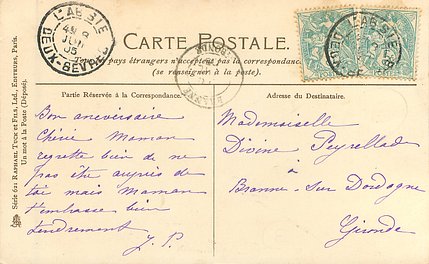 L'ABSIE
DEUX-SÈVRES
CARTE POSTALE.
pays étrangers n'acceptent pas la correspondance.
(se renseigner à la poste.)
L'ABSIE
Partie Réservée à la Correspondance.
Adresse du Destinataire.
Bon aniversaire
Chérie Maman
regrette bien de ne
pas être auprès de
toi mais Maman
t'embrasse bien
tendrement
J. P.
Mademoiselle
Divine Peyrellad
à
Branne-sur Dordogne
Gironde
Série 621 RAPHAEL TUCK ET FILS, LTD., EDITEURS, Paris.
Un mot à la Poste (Déposé).